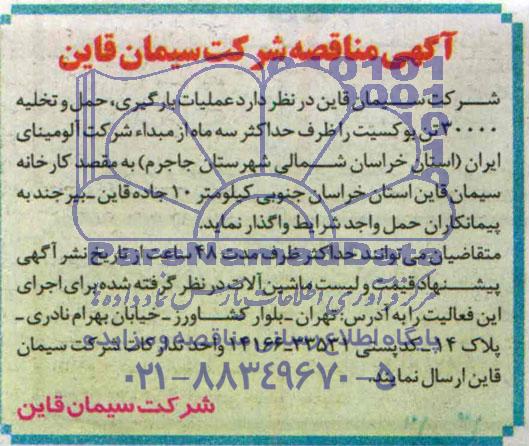 آگهی مناقصه شرکت سیمان قاین
شرکت سیمان قاین در نظر دارد عملیات بارگیری، حمل و تخلیه
۳۰۰۰۰ تن بوکسیت را ظرف حداکثر سه ماه از مبداء شرکت آلومینای
ایران (استان خراسان شمالی شهرستان جاجرم) به مقصد کارخانه
سیمان قاین استان خراسان جنوبی کیلومتر ۱۰ جاده قاین ـ بیرجند به
پیمانکاران حمل واجد شرایط واگذار نماید.
متقاضیان می‌توانند حداکثر ظرف مدت ۴۸ ساعت از تاریخ نشر آگهی
پیشنهاد قیمت و لیست ماشین‌آلات در نظر گرفته شده برای اجرای
این فعالیت را به آدرس: تهران ـ بلوار کشاورز ـ خیابان بهرام نادری ـ
پلاک ۱۴ ـ کدپستی ۳۳۵۳۱ـ۱۴۱۶۶ واحد تدارکات شرکت سیمان
قاین ارسال نمایند.
شرکت سیمان قاین
ParsNamadData
مرکز فرآوری اطلاعات پارس نماد داده‌ها
پایگاه اطلاع رسانی مناقصه و مزایده
۰۲۱-۸۸۳۴۹۶۷۰-۵